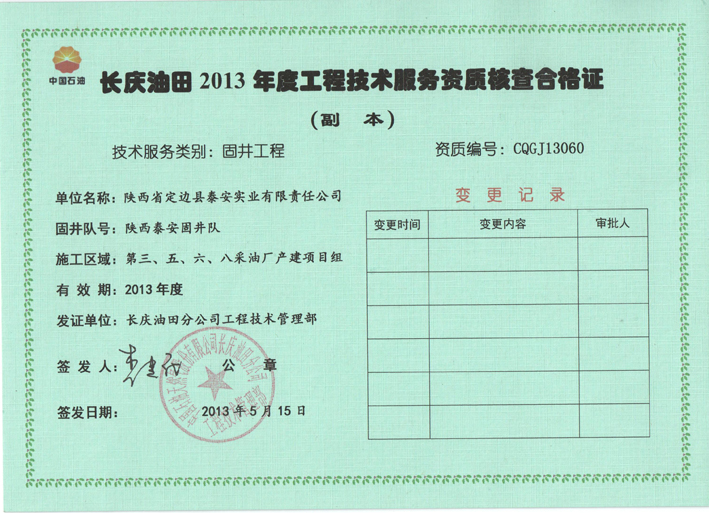 中国石油
长庆油田 2013 年度工程技术服务资质核查合格证
(副 本)
技术服务类别：固井工程
资质编号：CQGJ13060
单位名称：陕西省定边县泰安实业有限责任公司
固井队号：陕西泰安固井队
施工区域：第三、五、六、八采油厂产建项目组
有 效 期：2013年度
发证单位：长庆油田分公司工程技术管理部
签 发 人：
公 章
签发日期：
2013年5月15日
变 更 记 录
变更时间 变更内容 审批人
中国石油天然气股份有限公司长庆油田分公司
工程技术管理部